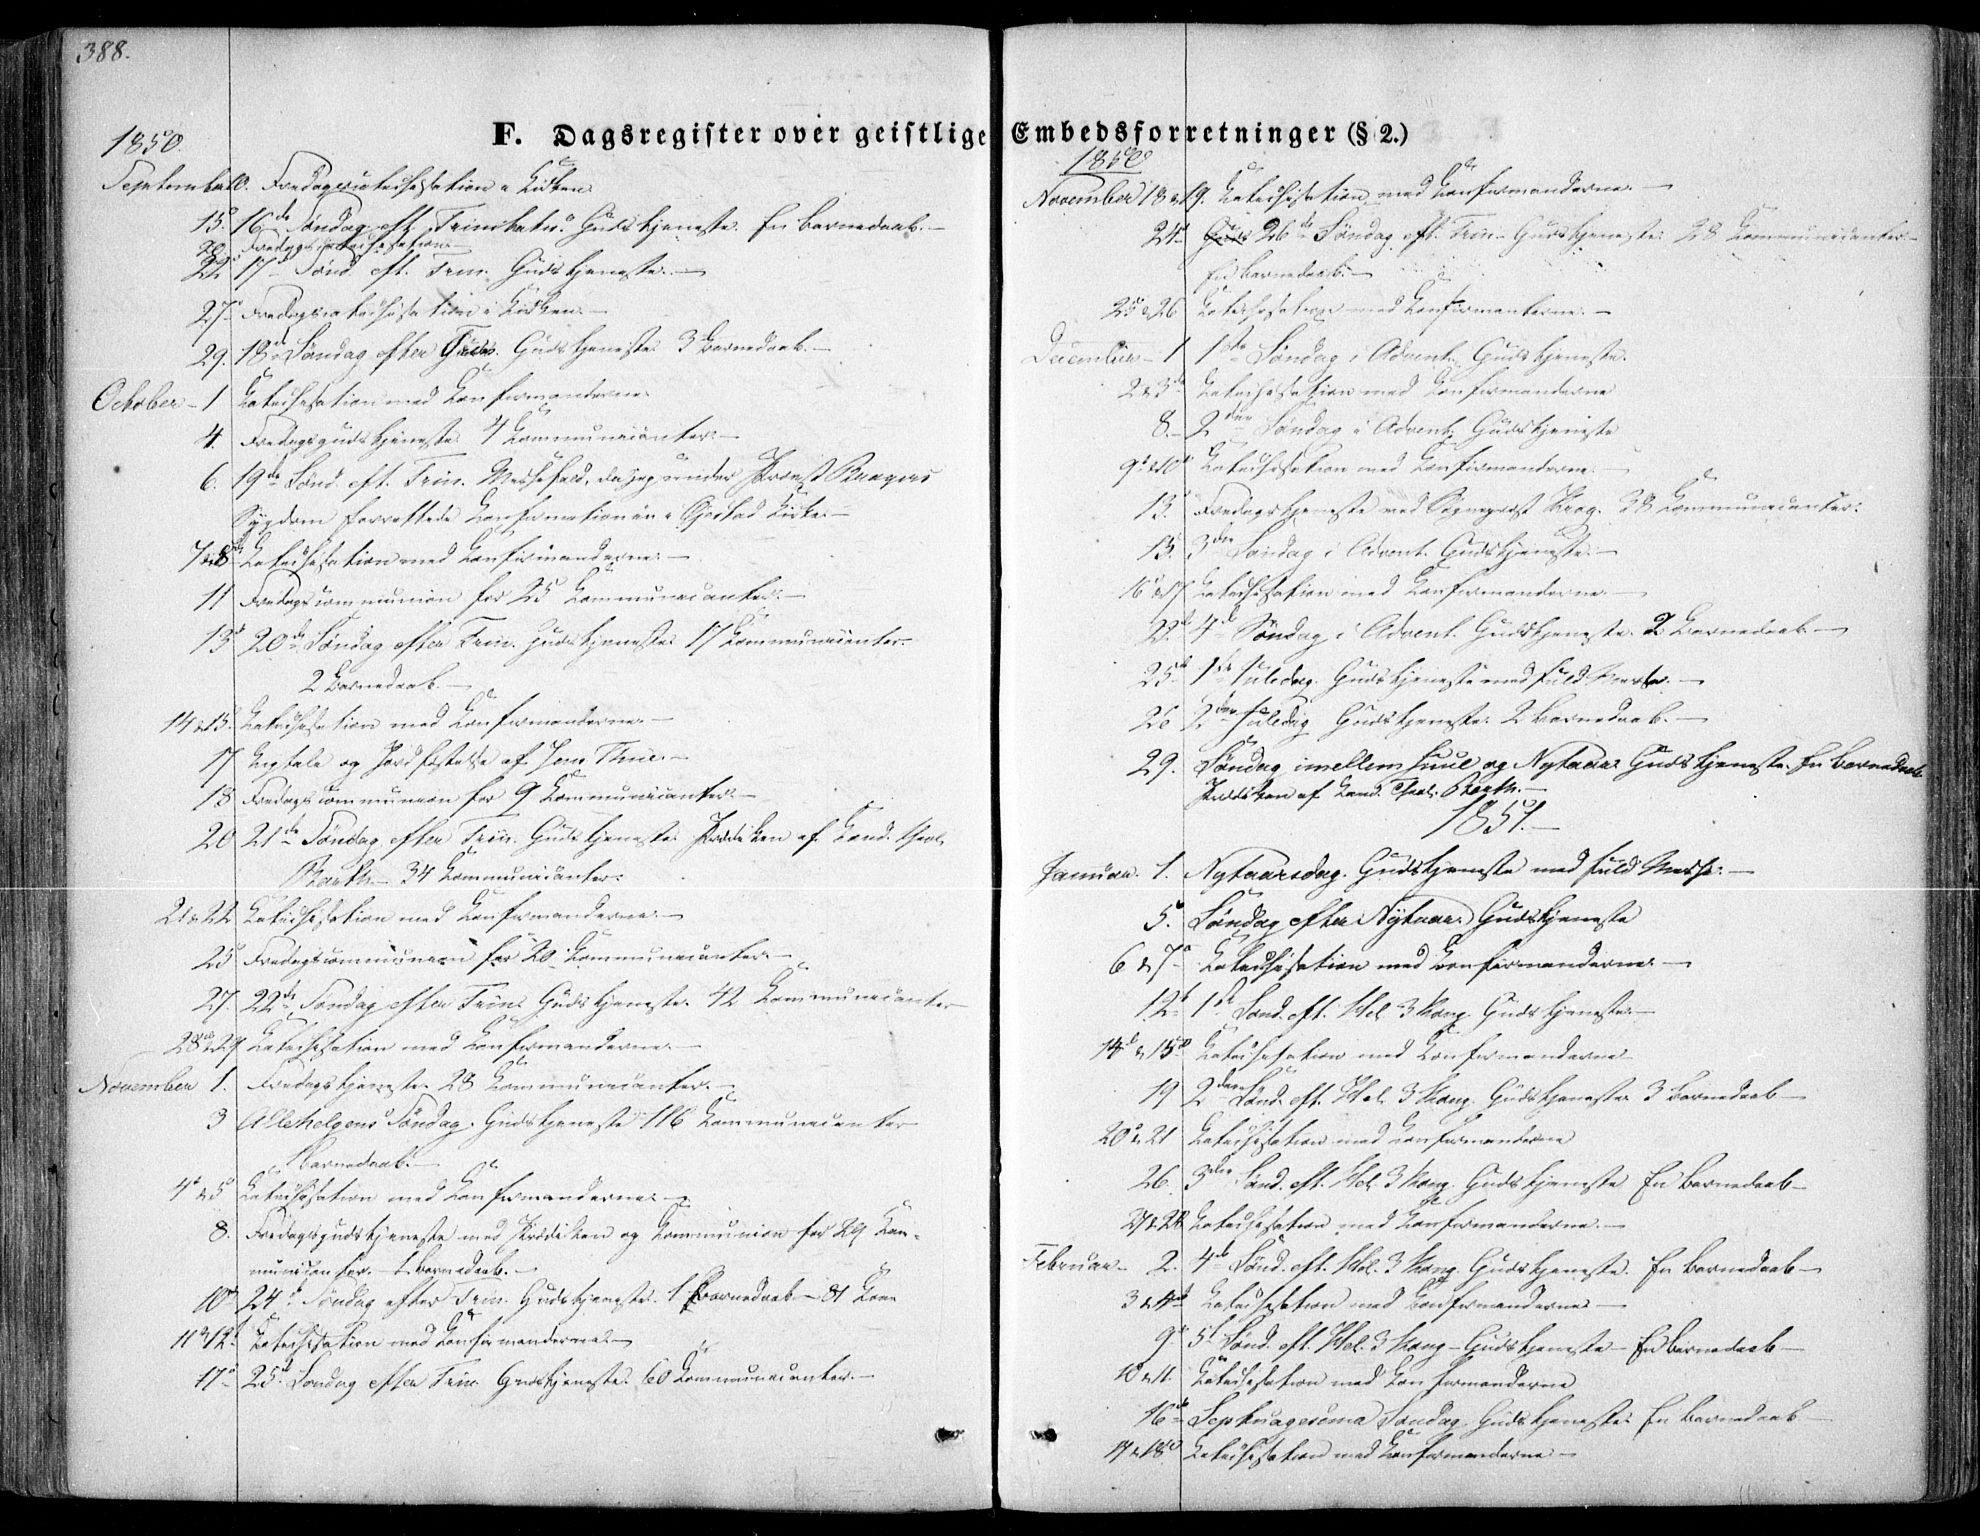 388.
F. Dagsregister over geistlige Embedsforretninger (§ 2.)
1850.
September Fredagscatechisation i Kirken
15. 16de Søndag eft. Trinitatis. Gudstjeneste. En Barnedaab.—
20. Fredagscatechisation
22. 17d Sønd. eft. Trin. Gudstjeneste.—
27. Fredagscatechisation i Kirken.—
29. 18d Søndag efter Trin. Gudstjeneste 3 Barnedaab.—
October – 1 Catechisation med Confirmanderne
4. Fredagsgudstjeneste 4 Communicanter.—
6. 19de Sønd. eft. Trin. Messefald, da jeg under Provst
Sygdom forrettede Confirmationen i Gjestad Kirke.—
7 & 8d Catechisation med Confirmanderne.—
11 Fredagscommunion for 25 Communicanter.—
13d 20de Søndag efter Trin. Gudstjeneste 17 Communicanter.
2 Barnedaab.—
14 & 15. Catechisation med Confirmanderne.—
17 Ligtale og Jordfæstelse af
18 Fredagscommunion for 9 Communicanter.—
20 21de Søndag efter Trin. Gudstjeneste Prædiken af Cand. theol.
34 Communicanter.
21 & 22 Catechisation med Confirmanderne.—
25 Fredagscommunion for 20 Communicanter.—
27. 22de Søndag efter Trin. Gudstjeneste. 42 Communicanter
28 & 29 Catechisation med Confirmanderne.—
November 1. Fredagstjeneste. 28 Communicanter.—
3 Allehelgens Søndag. Gudstjeneste 116 Communicanter
1 Barnedaab.—
4 & 5 Catechisation med Confirmanderne.—
8. Fredagsgudstjeneste med Prædiken og Communion for 29 Com-
municanter. – 1 Barnedaab.—
10d 24d Søndag efter Trin. Gudstjeneste. 1 Barnedaab – 81 Com
11 & 12d Catechisation med Confirmanderne.—
17d 25d Søndag efter Trin. Gudstjeneste. 60 Communicanter.—
1850
November 18 & 19. Catechisation med Confirmanderne.—
24d 26de Søndag eft. Trin. Gudstjeneste. 28 Communicanter—
En Barnedaab.—
25 & 26 Catechisation med Confirmanterne.—
December – 1 1ste Søndag i Advent. Gudstjeneste.
2 & 3de Catechisation med Confirmanderne
8. – 2den Søndag i Advent. Gudstjeneste
9 & 10d Catechisation med Confirmanderne.—
13. Fredagstjeneste ved Sognepræst Krog. 38 Communicanter.
15. 3die Søndag i Advent. Gudstjeneste.—
16 & 17 Catechisation med Confirmanderne.—
22d 4d Søndag i Advent. Gudstjeneste. 2 Barnedaab.—
25d 1ste Juledag. Gudstjeneste med fuld Messe.—
26 2den Juledag Gudstjeneste. 2 Barnedaab.—
29. Søndag imellem Juul og Nytaar Gudstjeneste. En Barnedaab
Prædiken af Cand. Theol.
1851.—
Januar. 1. Nytaarsdag. Gudstjeneste med fuld Messe.—
5. Søndag efter Nytaar. Gudstjeneste
6 & 7d Catechisation med Confirmanderne.—
12d 1ste Sønd. eft. Hel. 3 Kong. Gudstjeneste.—
14d & 15d Catechisation med Confirmanderne
19 2den Sønd. eft. Hel. 3 Kong. Gudstjeneste 3 Barnedaab—
20 & 21 Catechisation med Confirmanderne
26. 3die Sønd. eft. Hel. 3 Kong. Gudstjeneste En Barnedaab—
27 & 28 Catechisation med Confirmanderne.—
Februar – 2. 4de Sønd. eft. Hel. 3 Kong. Gudstjeneste. En Barnedaab—
3 & 4d Catechisation med Confirmanderne—
9d 5t Sønd. eft. Hel. 3 Kong – Gudstjeneste – En Barnedaab—
10 & 11. Catechisation med Confirmanderne
16d Septuagesima Søndag. Gudstjeneste. En Barnedaab—
17 & 18d Catechisation med Confirmanderne.—